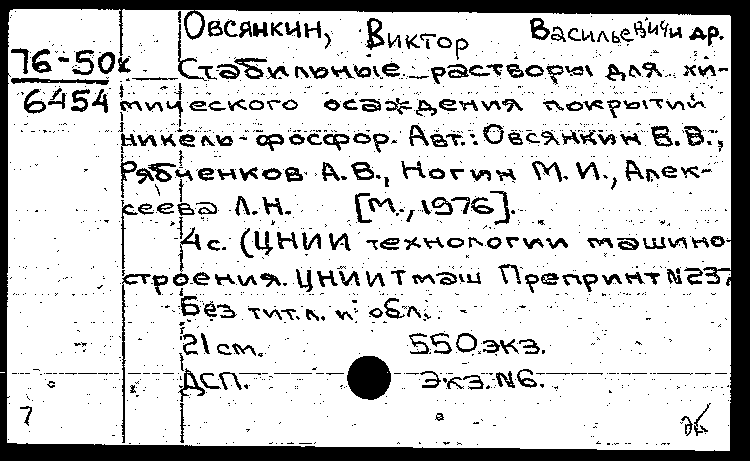 Овсянкин, Виктор Васильевич и др.
76-50к
6454
Стабильные растворы для хи-
мического осаждения покрытий
никель-фосфор. Авт.: Овсянкин В.В.,
Рябченков А.В., Ногин М.И., Алек-
сеева Л.Н. [М., 1976].
4с. (ЦНИИ технологии машино-
строения. ЦНИИТмаш Препринт №237
Без тит.л. и обл.
21см. 550экз.
ДСП. Экз. №6.
7